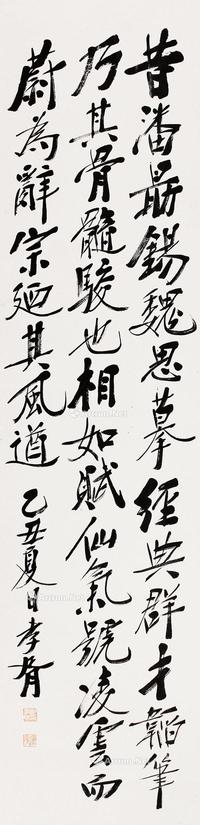 昔潘勗錫魏思摹經典群才韜筆
乃其骨髓駿也相如賦仙氣號凌雲而
蔚為辭宗廼其風遒 乙丑夏日孝胥